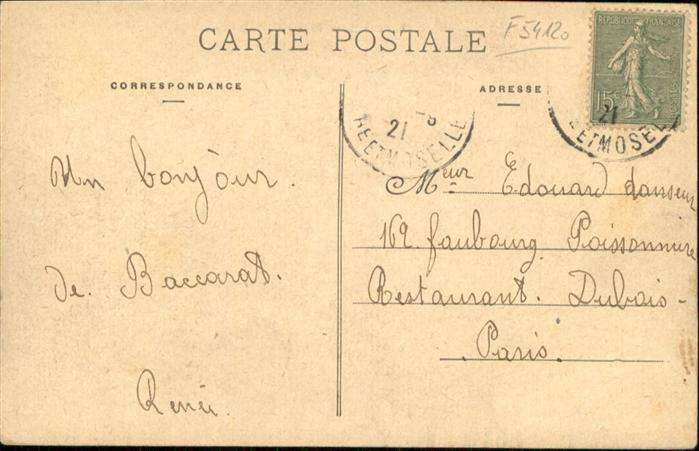 CARTE POSTALE
F5412o
CORRESPONDANCE
ADRESSE
REPUBLIQUE FRANÇAISE
15c
21 -8
RE ET MOSELLE
21
E ET MOSEL
Un bonjour.
de. Baccarat.
René.
Meur Edouard danseur
169. faubourg Poissonnière
Restaurant. Dubois-
Paris.